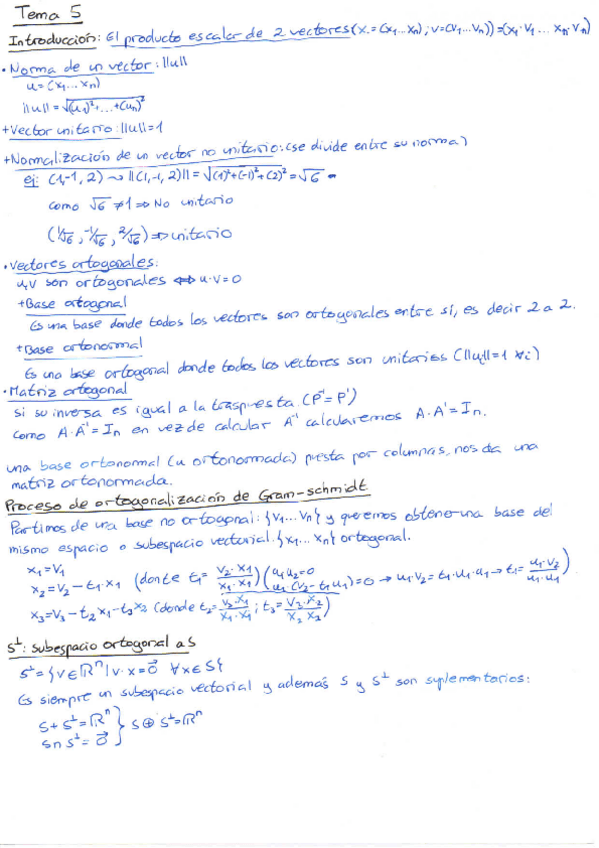 Tema 5
Introducción: El producto escalar de 2 vectores (x=(x1...xn); v=(v1...vn)) = (x1·v1 ... xn·vn)
• Norma de un vector: ||u||
u=(x1...xn)
||u||=√(u1)²+...+(un)²
+ Vector unitario: ||u||=1
+ Normalización de un vector no unitario: (se divide entre su norma)
ej: (1,-1,2) ⇝ ||(1,-1,2)||=√(1)²+(-1)²+(2)²=√6
como √6≠1 ⇒ No unitario
(1/√6, -1/√6, 2/√6) ⇒ unitario
• Vectores ortogonales:
u,v son ortogonales ⇔ u·v=0
+ Base ortogonal
Es una base donde todos los vectores son ortogonales entre sí, es decir 2 a 2.
+ Base ortonormal
Es una base ortogonal donde todos los vectores son unitarios (||ui||=1 ∀i)
• Matriz ortogonal
si su inversa es igual a la traspuesta (P⁻¹=P')
como A·A⁻¹=In en vez de calcular A⁻¹ calcularemos A·A'=In.
una base ortonormal (u ortonormada) puesta por columnas, nos da una
matriz ortonormada.
Proceso de ortogonalización de Gram-schmidt
Partimos de una base no ortogonal: {v1...vn} y queremos obtener una base del
mismo espacio o subespacio vectorial {x1...xn} ortogonal.
x1=v1
x2=v2-t1·x1 (donde t1=v2·x1/x1·x1) (u1u2=0 u1·(v2-t1u1)=0 → u1·v2=t1·u1·u1 → t1=u1·v2/u1·u1)
x3=v3-t2x1-t3x2 (donde t2=v3·x1/x1·x1; t3=v3·x2/x2·x2)
S⊥: subespacio ortogonal a S
S⊥={v∈ℝⁿ | v·x=0⃗ ∀x∈S}
Es siempre un subespacio vectorial y además S y S⊥ son suplementarios:
S+S⊥=ℝⁿ } S⊕S⊥=ℝⁿ
S∩S⊥=0⃗